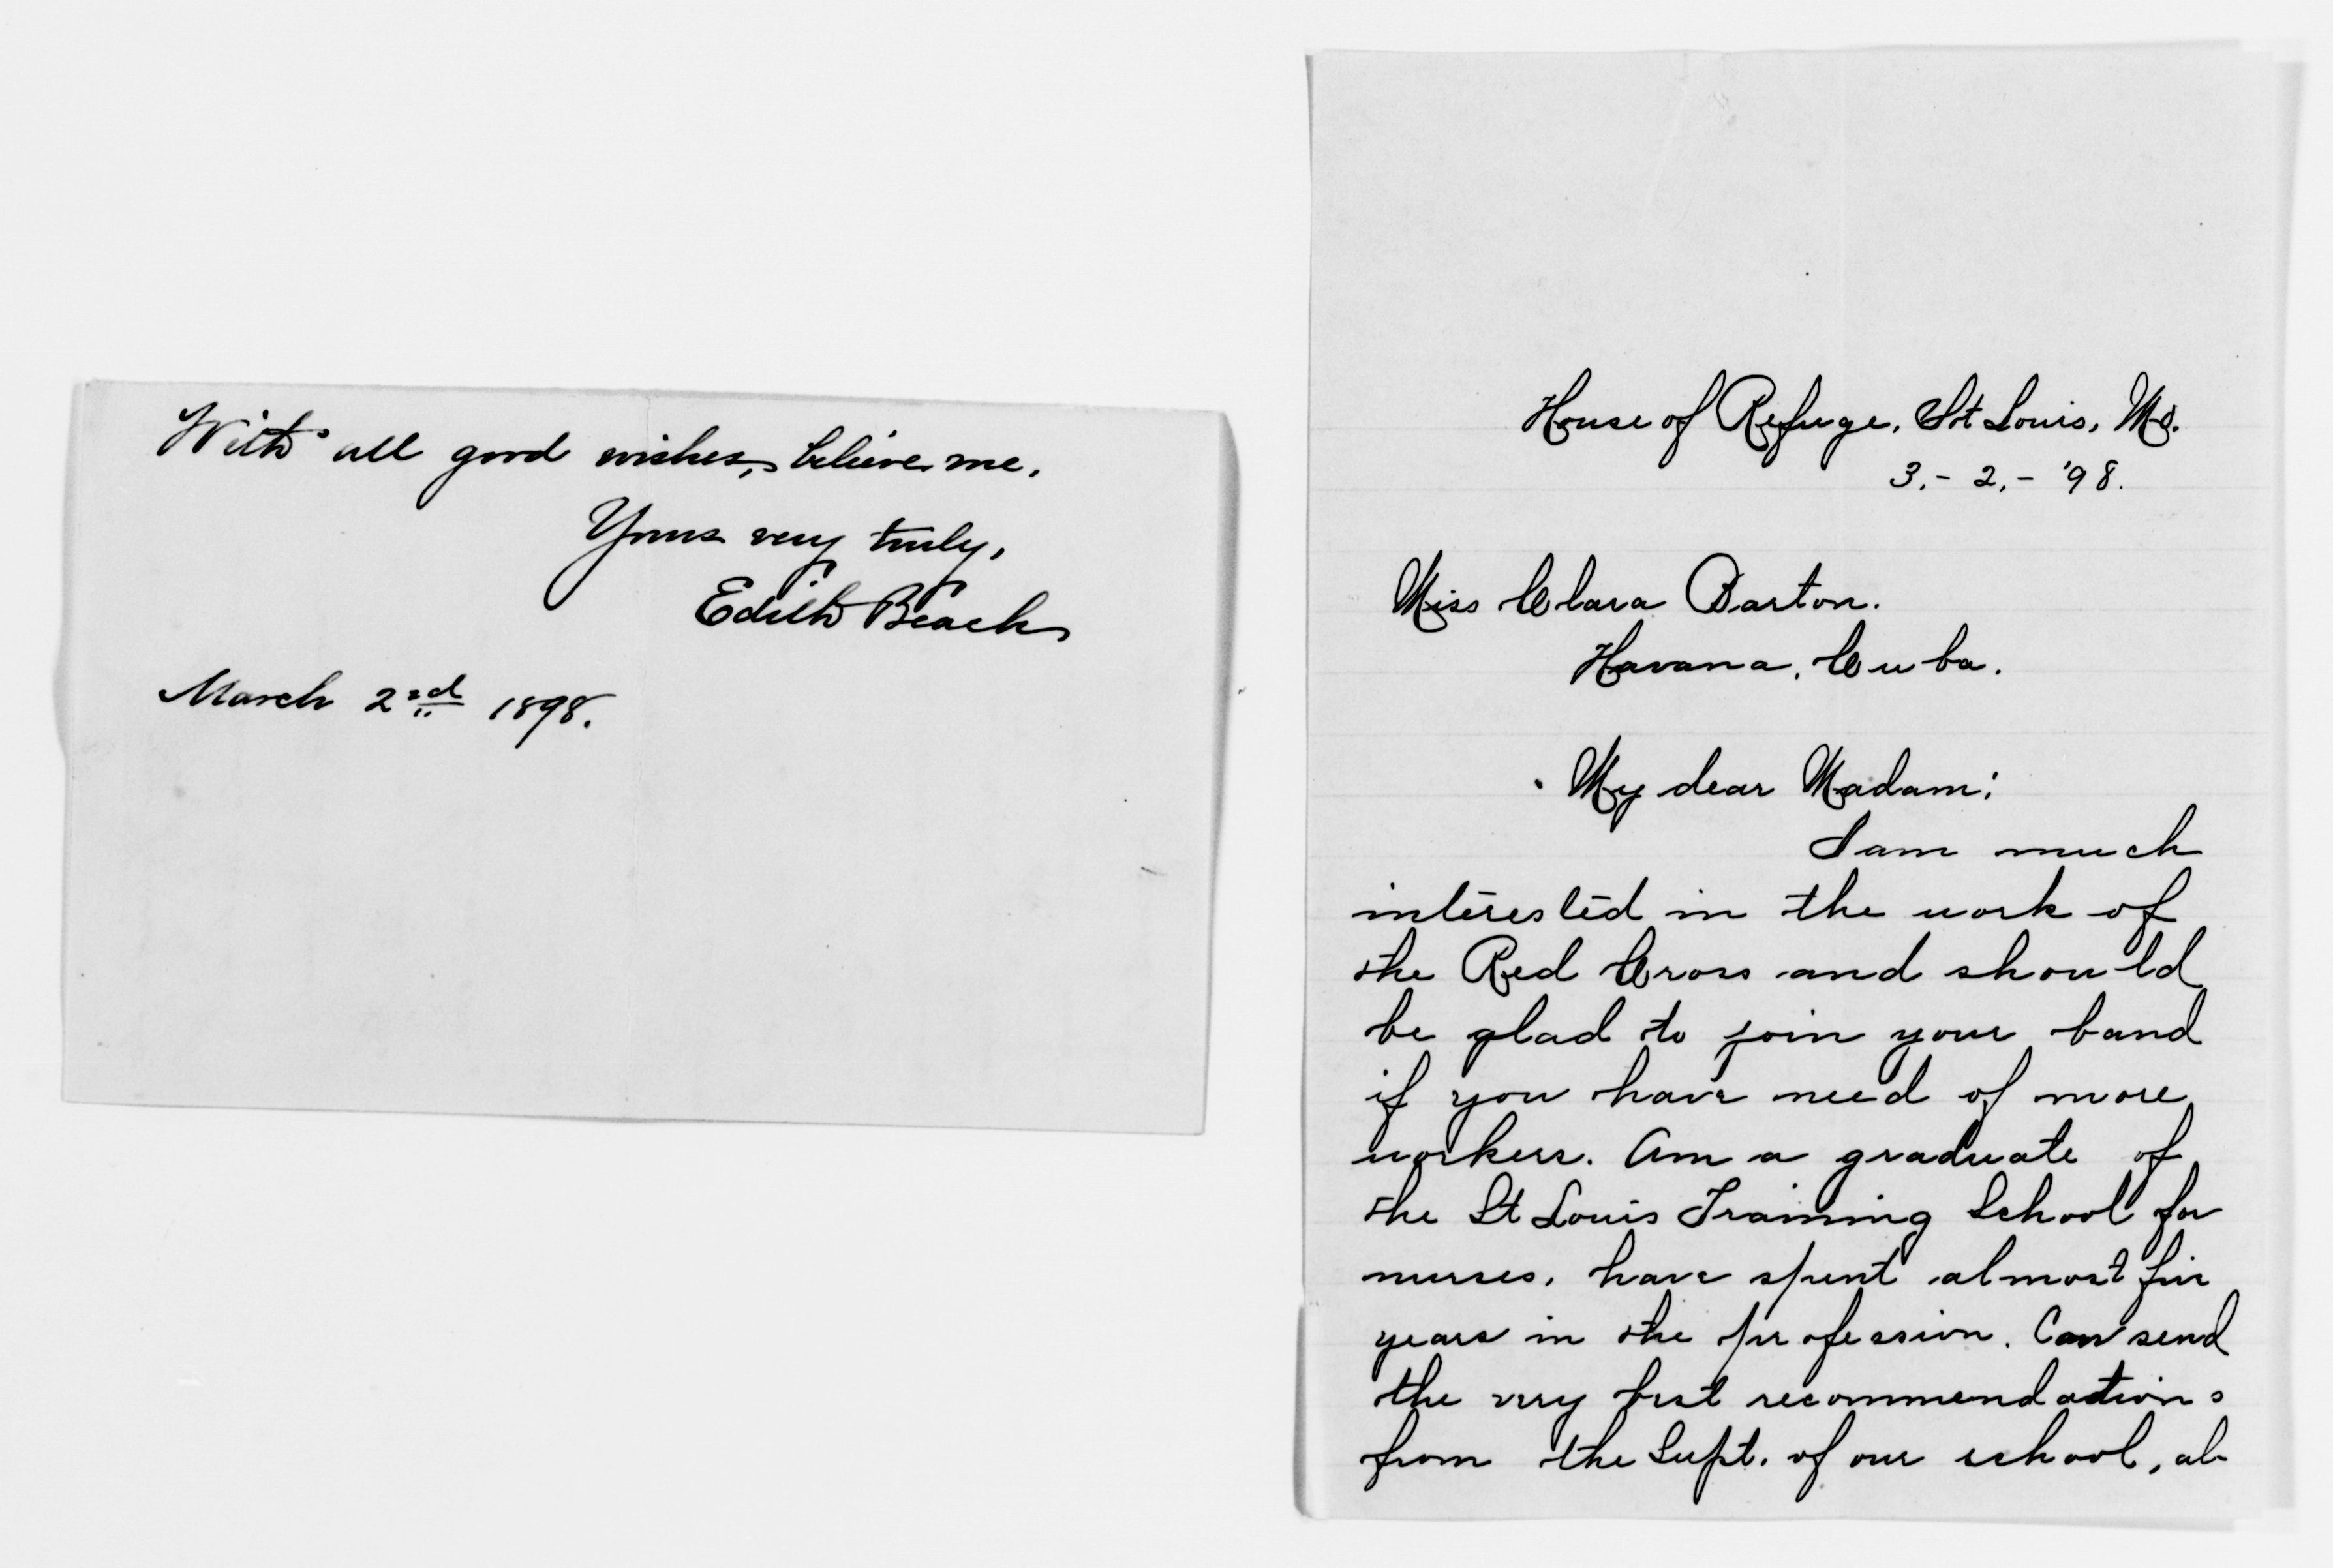 With all good wishes, believe me,
Yours very truly,
Edith Beach
March 2nd 1898.
House of Refuge, St Louis, Mo.
3,- 2,- '98.
Miss Clara Barton.
Havana, Cuba.
My dear Madam;
I am much
interested in the work of
the Red Cross and should
be glad to join your band
if you have need of more
workers. Am a graduate of
the St Louis Training School for
nurses, have spent almost five
years in the profession. Can send
the very best recommendations
from the Supt. of our school, al-